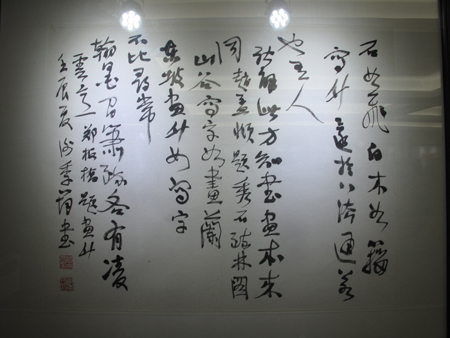 石如飛白木如籀
写竹還於八法通若
也有人
能解此方知書畫本來
同趙孟頫題秀石疏林圖
山谷寫字如畫蘭
東坡畫竹如寫字
不比尋常
翰墨間蕭疏各有凌
雲意鄭板橋題畫竹
壬辰夏書